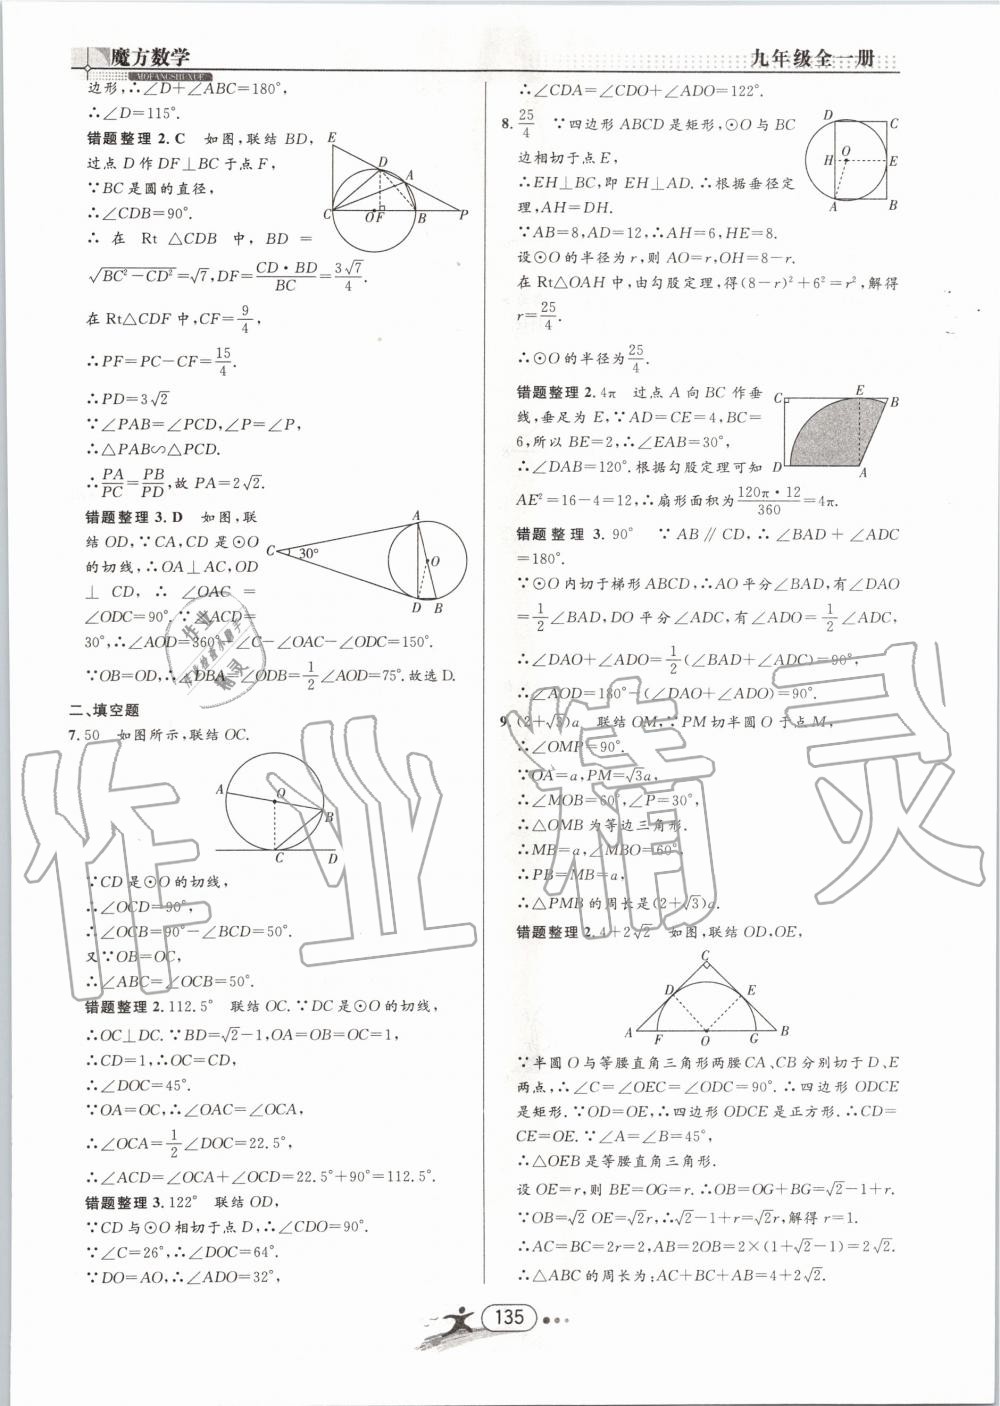 魔方数学
MOFANGSHUXUE
九年级全一册
边形,∴∠D+∠ABC=180°,
∴∠D=115°.
错题整理 2. C 如图,联结 BD,
过点 D 作 DF⊥BC 于点 F,
∵BC 是圆的直径,
∴∠CDB=90°.
∴ 在 Rt △CDB 中, BD =
√(BC²-CD²)=√7,DF=CD·BD/BC=3√7/4.
在 Rt△CDF 中,CF=9/4,
∴PF=PC-CF=15/4.
∴PD=3√2
∵∠PAB=∠PCD,∠P=∠P,
∴△PAB∽△PCD.
∴PA/PC=PB/PD,故 PA=2√2.
E
D
A
C
O
F
B
P
错题整理 3. D 如图,联
结 OD,∵CA,CD 是⊙O
的切线,∴OA⊥AC,OD
⊥ CD, ∴ ∠OAC =
∠ODC=90°.∵∠ACD=
30°,∴∠AOD=360°-∠C-∠OAC-∠ODC=150°.
∵OB=OD,∴∠DBA=∠ODB=1/2∠AOD=75°.故选 D.
A
C
30°
O
D
B
二、填空题
7. 50 如图所示,联结 OC.
A
O
B
C
D
∵CD 是⊙O 的切线,
∴∠OCD=90°,
∴∠OCB=90°-∠BCD=50°.
又∵OB=OC,
∴∠ABC=∠OCB=50°.
错题整理 2. 112.5° 联结 OC.∵DC 是⊙O 的切线,
∴OC⊥DC.∵BD=√2-1,OA=OB=OC=1,
∴CD=1,∴OC=CD,
∴∠DOC=45°.
∵OA=OC,∴∠OAC=∠OCA,
∴∠OCA=1/2∠DOC=22.5°,
∴∠ACD=∠OCA+∠OCD=22.5°+90°=112.5°.
错题整理 3. 122° 联结 OD,
∵CD 与⊙O 相切于点 D,∴∠CDO=90°.
∵∠C=26°,∴∠DOC=64°.
∵DO=AO,∴∠ADO=32°,
∴∠CDA=∠CDO+∠ADO=122°.
8. 25/4 ∵四边形 ABCD 是矩形,⊙O 与 BC
边相切于点 E,
∴EH⊥BC,即 EH⊥AD.∴根据垂径定
理,AH=DH.
∵AB=8,AD=12,∴AH=6,HE=8.
设⊙O 的半径为 r,则 AO=r,OH=8-r.
在 Rt△OAH 中,由勾股定理,得(8-r)²+6²=r²,解得
r=25/4.
∴⊙O 的半径为25/4.
D
C
H
O
E
A
B
错题整理 2. 4π 过点 A 向 BC 作垂
线,垂足为 E,∵AD=CE=4,BC=
6,所以 BE=2,∴∠EAB=30°,
∴∠DAB=120°.根据勾股定理可知
AE²=16-4=12,∴扇形面积为120π·12/360=4π.
C
E
B
D
A
错题整理 3. 90° ∵ AB∥CD,∴∠BAD+∠ADC
=180°.
∵⊙O 内切于梯形 ABCD,∴AO 平分∠BAD,有∠DAO
=1/2∠BAD,DO 平分∠ADC,有∠ADO=1/2∠ADC,
∴∠DAO+∠ADO=1/2(∠BAD+∠ADC)=90°,
∴∠AOD=180°-(∠DAO+∠ADO)=90°.
9. (2+√3)a 联结 OM,∵PM 切半圆 O 于点 M,
∴∠OMP=90°.
∵OA=a,PM=√3a,
∴∠MOB=60°,∠P=30°,
∴△OMB 为等边三角形.
∴MB=a,∠MBO=60°.
∴PB=MB=a.
∴△PMB 的周长是(2+√3)a.
错题整理 2. 4+2√2 如图,联结 OD,OE,
C
D
E
A
F
O
G
B
∵半圆 O 与等腰直角三角形两腰 CA、CB 分别切于 D、E
两点,∴∠C=∠OEC=∠ODC=90°.∴四边形 ODCE
是矩形.∵OD=OE,∴四边形 ODCE 是正方形.∴CD=
CE=OE.∵∠A=∠B=45°,
∴△OEB 是等腰直角三角形.
设 OE=r,则 BE=OG=r.∴OB=OG+BG=√2-1+r.
∵OB=√2 OE=√2r,∴√2-1+r=√2r,解得 r=1.
∴AC=BC=2r=2,AB=2OB=2×(1+√2-1)=2√2.
∴△ABC 的周长为:AC+BC+AB=4+2√2.
135
作业精灵